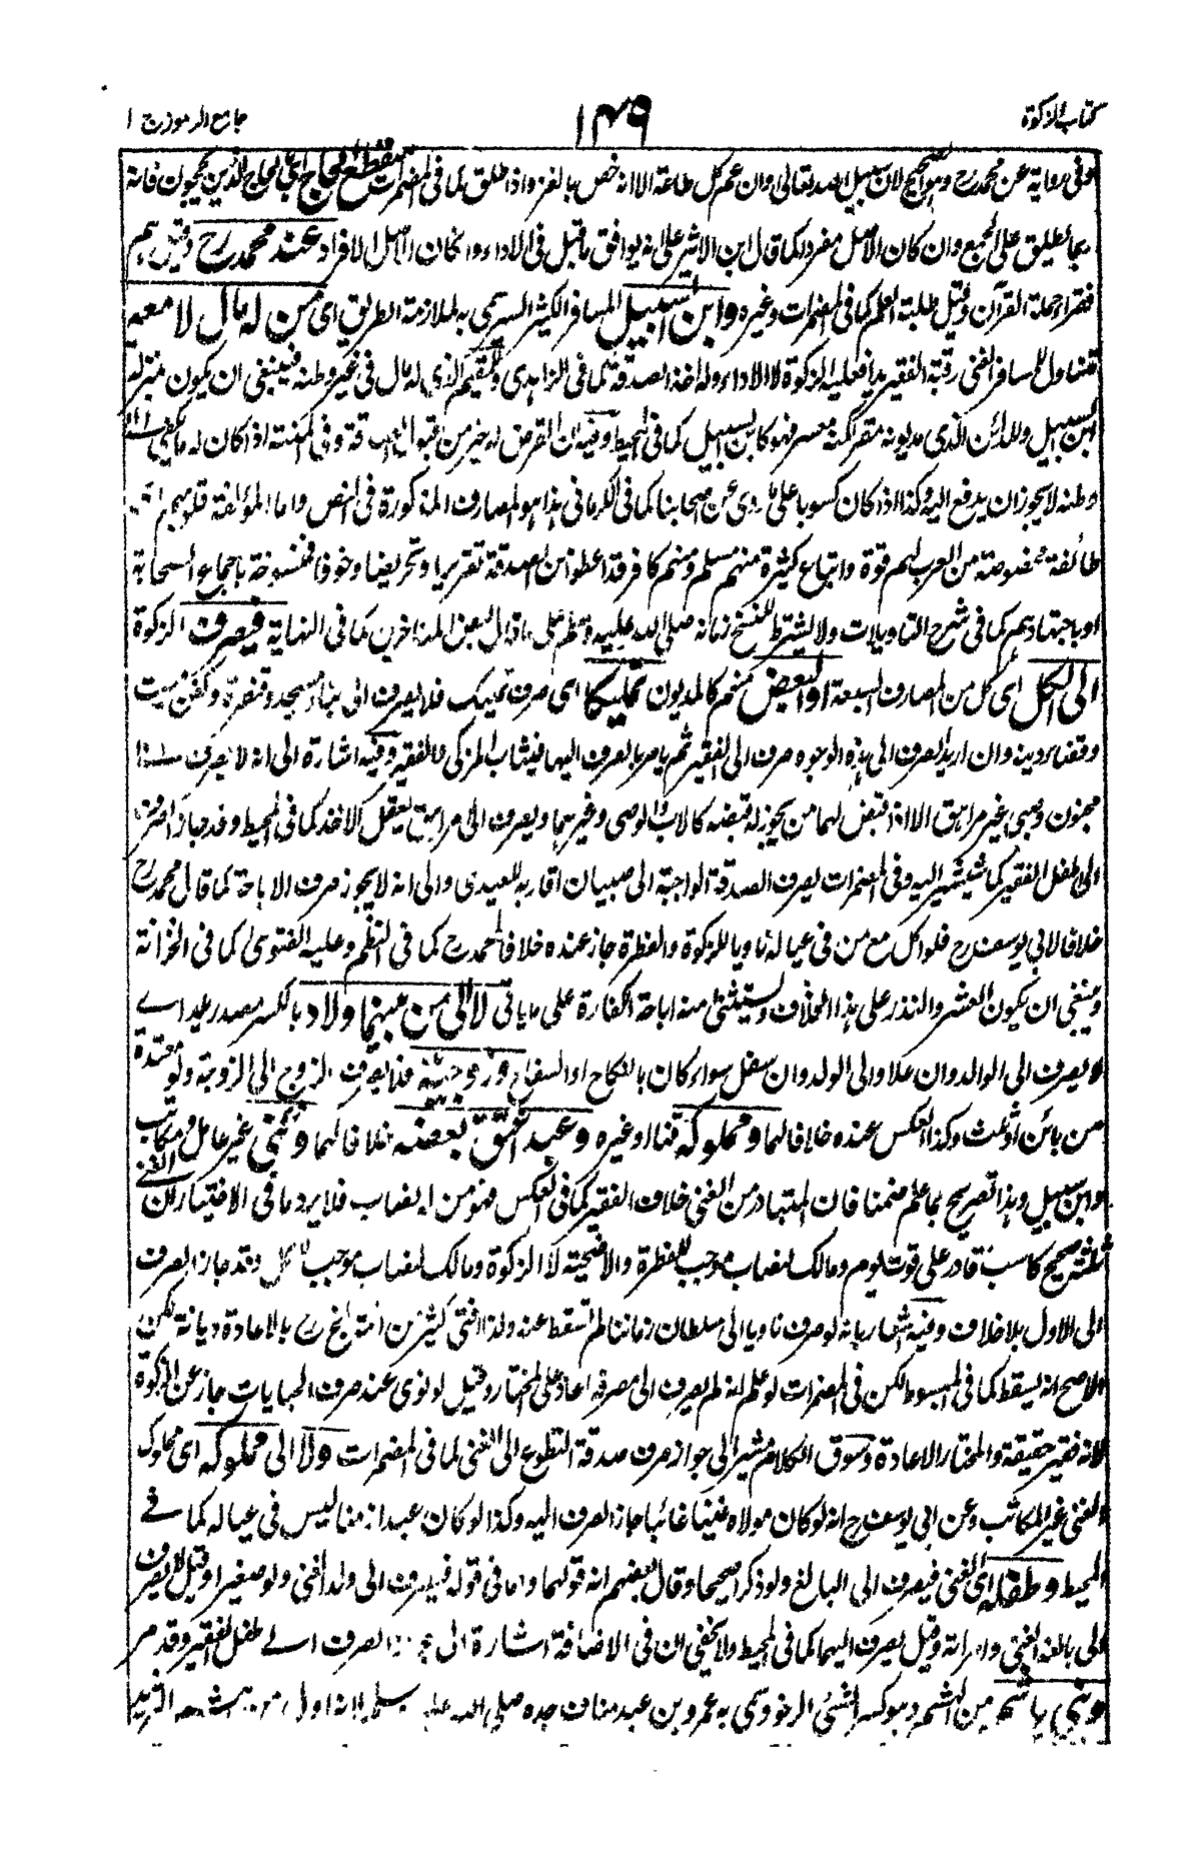 كتاب الزكوة
۱۴۹
جامع الرموز ج ۱
وفى رواية عن محمد رح وهو الصحيح لان سبيل الله تعالى وان عم كل طاعة الا انه خص بالغزو اذا اطلق كما فى المضمرات منقطع الحاج اى الحاج الذين يحجون فانه
مما يطلق على الجمع وان كان الاصل مفردا كما قال ابن الاثير على انه يوافق ما قبل فى الاداء وان كان الاصل الافراد عند محمد رح وقيل هم
فقراء حملة القرآن وقيل طلبة العلم كما فى المضمرات وغيره وابن السبيل المسافر الكثير السير سمى به لملازمة الطريق اى من له مال لا معه
فتناول المسافر الغنى رقبة الفقير يدا فعليه الزكوة لا الاداء وله اخذ الصدقة كما فى الزاهدى والمقيم الذى له مال فى غير وطنه فينبغى ان يكون بمنزلة
ابن السبيل وللدائن الذى مديونه مقر لكنه معسر فهو كابن السبيل كما فى المحيط وفيه ان القرض له خير من قبول الصدقة وفى المنية اذا كان له ما يكفى الى
وطنه لا يجوز ان يدفع اليه وكذا اذا كان كسوبا على ما روى عن اصحابنا كما فى الكرمانى هذا هو المصارف المذكورة فى النص واما المؤلفة قلوبهم
طائفة مخصوصة من العرب لهم قوة واتباع كثيرة منهم مسلم ومنهم كافر قد اعطوا من الصدقة تقريرا وتحريضا وخوفا فمنسوخة باجماع الصحابة
او باجتهادهم كما فى شرح التاويلات ولا يشترط للنسخ زمانه صلى الله عليه وسلم على ما قال بعض المتاخرين كما فى النهاية فيصرف الزكوة
الى الكل اى كل من المصارف السبعة او البعض منهم كالمديون تمليكا اى صرف تمليك فلا يصرف الى بناء مسجد وقنطرة وكفن ميت
وقضاء دينه وان اريد الصرف الى هذه الوجوه صرف الى الفقير ثم يامر بالصرف اليها فيثاب المزكى والفقير وفيه اشارة الى انه لا يصرف الى
مجنون وصبى غير مراهق الا اذا قبض لهما من يجوز له قبضه كالاب والوصى وغيرهما ويصرف الى مراهق يعقل الاخذ كما فى المحيط وقد جاز الصرف
الى الطفل الفقير كما سيشير اليه وفى المضمرات يصرف الصدقة الواجبة الى صبيان اقاربه للعيدى والى انه لا يجوز صرف الاباحة كما قال محمد رح
خلافا لابى يوسف رح فلو اكل مع من فى عياله ناويا للزكوة والفطرة جاز عنده خلافا لمحمد رح كما فى النظم وعليه الفتوى كما فى الخزانة
وينبغى ان يكون العشر والنذر على هذا الخلاف ويستثنى منه اباحة الكفارة على ما ياتى لا الى من بينهما ولاد بالكسر مصدر ولد اے
لا يصرف الى الوالد وان علا والى الولد وان سفل سواء كان بالنكاح او السفاح وزوجية فلا يصرف الزوج الى الزوجة ولو معتدة
من بائن او ثلث وكذا العكس عنده خلافا لهما ومملوكه قنا او غيره وعبد اعتق بعضه خلافا لهما وغنى غير عامل ومكاتب
وابن سبيل وهذا تصريح بما علم ضمنا فان المتبادر من الغنى خلاف الفقير كما فى العكس فهو من له نصاب فلا يرد ما فى الاختيار ان الغنى
ثلثة صحيح كاسب قادر على قوت يوم ومالك نصاب موجب للفطرة والاضحية لا الزكوة ومالك نصاب موجب للكل وقد جاز الصرف
الى الاول بلا خلاف وفيه اشعار بانه لو صرف ناويا الى سلطان زماننا لم تسقط عنه ولذا افتى كثير من ائمة بلخ رح بالاعادة ديانة لكن
الاصح انه يسقط كما فى المبسوط لكن فى المضمرات لو علم انه لم يصرف الى مصرفه اعاد على المختار وقيل لو نوى عند صرف الجبايات جاز عن الزكوة
لانه فقير حقيقة والمختار الاعادة وسوق الكلام مشير الى جواز صرف صدقة التطوع الى الغنى كما فى المضمرات ولا الى مملوكه اى مملوك
الغنى غير المكاتب وعن ابى يوسف رح انه لو كان مولاه غنيا غائبا جاز الصرف اليه وكذا لو كان عبدا زمنا ليس فى عياله كما فے
المحيط وطفله اى الغنى فيصرف الى البالغ ولو ذكرا صحيحا وقال بعضهم انه قولهما واما فى قوله فيصرف الى ولد الغنى ولو صغيرا وقيل لا يصرف
الى بالغة الغنى وامراته وقيل يصرف اليهما كما فى المحيط ولا يخفى ان فى الاضافة اشارة الى جواز الصرف الے طفل الفقير وقد مر
وبنى هاشم من الهشم وهو كسر الشئ الرخو سمى به عمرو بن عبد مناف جده صلى الله عليه وسلم لانه اول من هشم الثريد